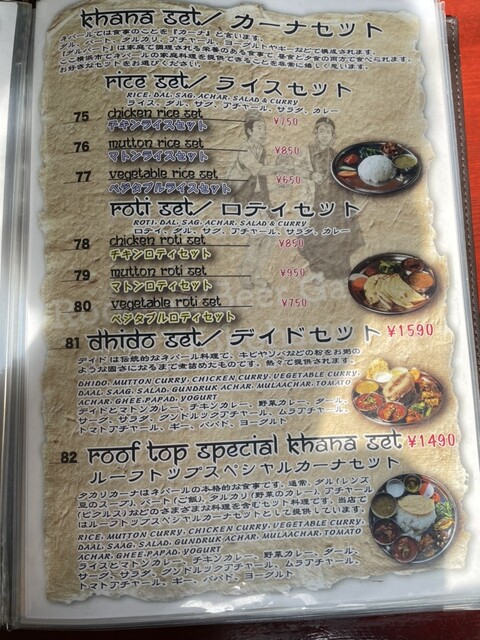 khana set/ カーナセット
ネパールでは食事のことを『カーナ』と言います。
ダル、バート、ダルカリ、アチャール、ヨーグルトやギーなどで構成されます。
『ダルバート』は家庭で調理される栄養のある食事で昼食と夕食の両方で食べられます。
ここ横浜市でネパールの家庭料理を提供できることを非常に嬉しく思います。
お好きなセットをお選びください。
rice set/ ライスセット
RICE, DAL, SAG, ACHAR, SALAD & CURRY
ライス、ダル、サグ、アチャール、サラダ、カレー
75 chicken rice set ¥750
チキンライスセット
76 mutton rice set ¥850
マトンライスセット
77 vegetable rice set ¥650
ベジタブルライスセット
roti set/ ロティセット
ROTI, DAL, SAG, ACHAR, SALAD & CURRY
ロティ、ダル、サグ、アチャール、サラダ、カレー
78 chicken roti set ¥850
チキンロティセット
79 mutton roti set ¥950
マトンロティセット
80 vegetable roti set ¥750
ベジタブルロティセット
81 dhido set/ デイドセット ¥1590
デイド は伝統的なネパール料理で、キビやソバなどの粉をお粥の
ような固さになるまで煮詰めたものです。熱々で提供されます。
DHIDO, MUTTON CURRY, CHICKEN CURRY, VEGETABLE CURRY,
DAAL, SAAG, SALAD, GUNDRUK ACHAR, MULAACHAR, TOMATO
ACHAR, GHEE, PAPAD, YOGURT
デイドとマトンカレー、チキンカレー、野菜カレー、ダール、
サーグ、サラダ、グンドルックアチャール、ムラアチャール、
トマトアチャール、ギー、パパド、ヨーグルト
82 roof top special khana set ¥1490
ルーフトップスペシャルカーナセット
タカリカーナはネパールの本格的な食事です。通常、ダル(レンズ
豆のスープ)、バート(ご飯)、ダルカリ(野菜のカレー)、アチャール
(ピクルス)などのさまざまな料理を含むセット料理です。当店で
はルーフトップスペシャルカーナセットとして提供しています。
RICE, MUTTON CURRY, CHICKEN CURRY, VEGETABLE CURRY,
DAAL, SAAG, SALAD, GUNDRUK ACHAR, MULAACHAR, TOMATO
ACHAR, GHEE, PAPAD, YOGURT
ライスとマトンカレー、チキンカレー、野菜カレー、ダール、
サーグ、サラダ、グンドルックアチャール、ムラアチャール、
トマトアチャール、ギー、パパド、ヨーグルト